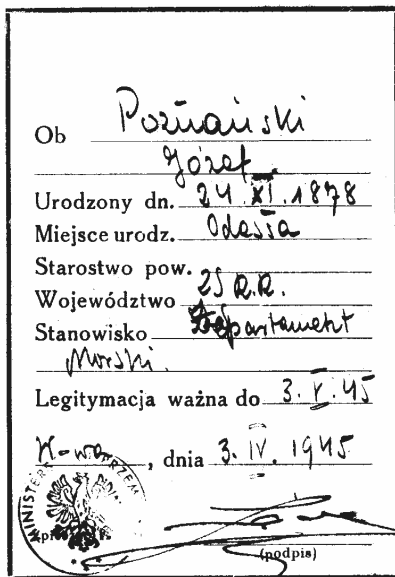 Ob Poznański
Józef
Urodzony dn. 24.XI.1878
Miejsce urodz. Odessa
Starostwo pow.
Województwo ZSRR.
Stanowisko Departament
Morski.
Legitymacja ważna do 3.V.45
W-wa, dnia 3.IV.1945
MINISTER PRZEM
(podpis)